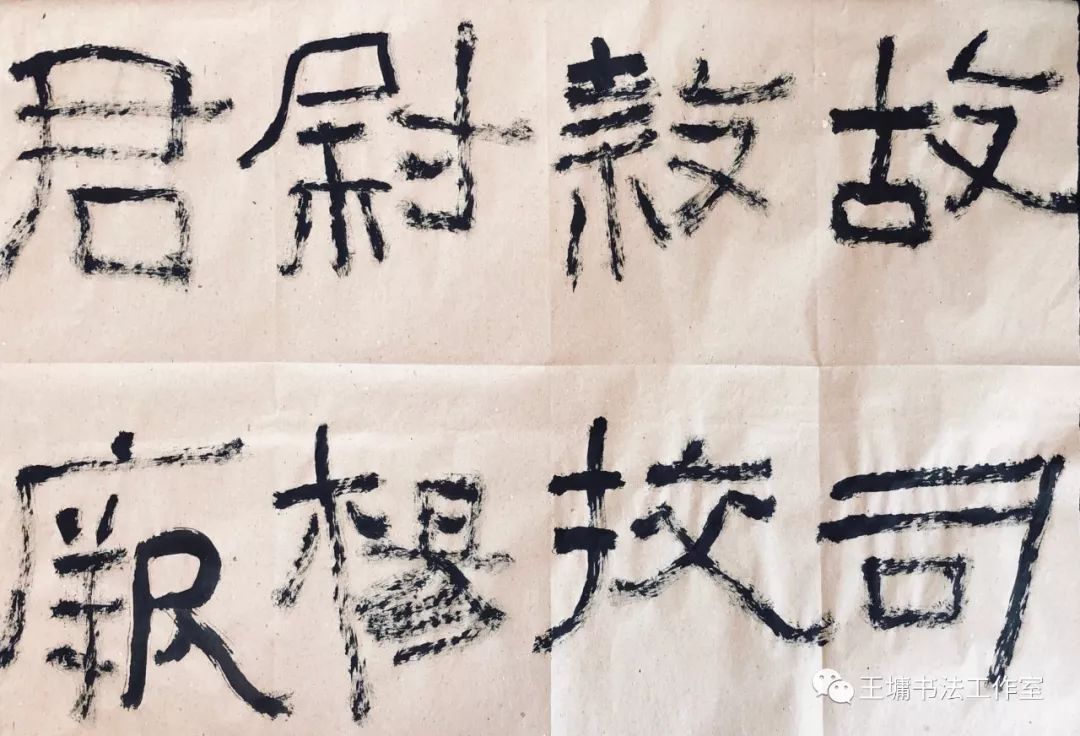 故司
隸挍
尉楊
君厥
王墉书法工作室